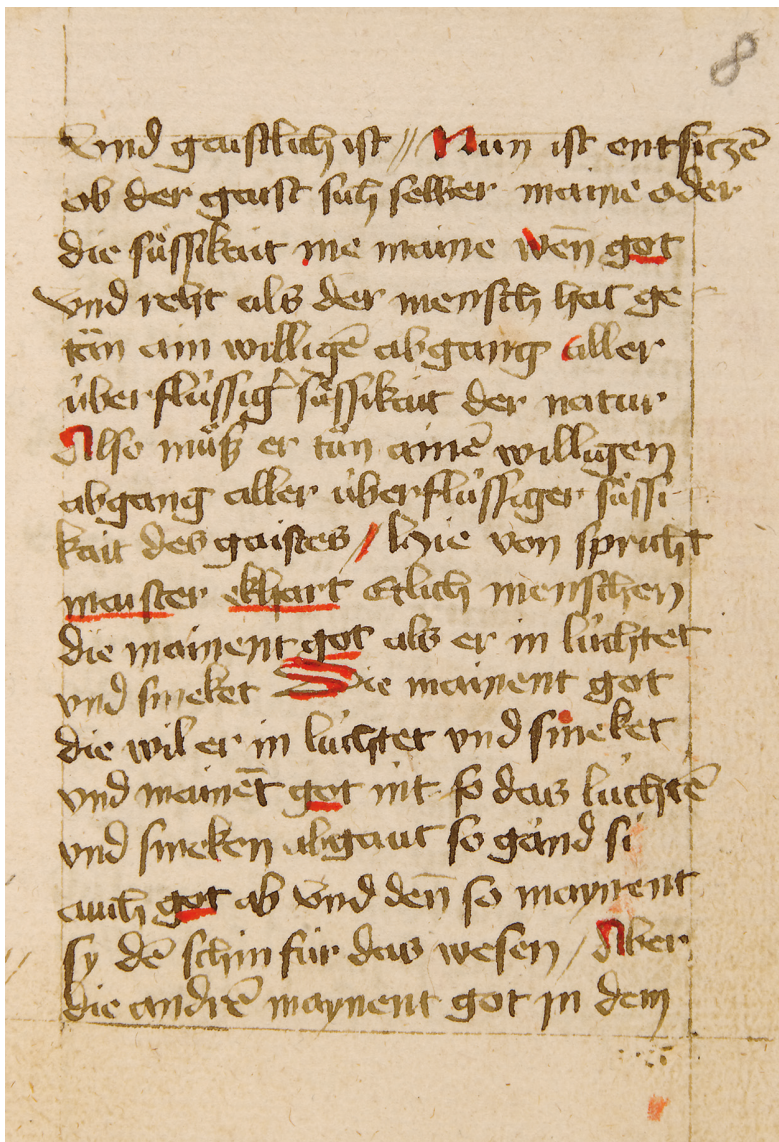 8
vnd gaistlich ist // Nun ist entsiczē
ob der gaist sich selber maine oder
die sússikait me maine wēn got
vnd reht als der mensch hat ge
tān ain willigē abgang aller
úberflússigʾ sússikait der natur
Also můsß er tůn ainē willigen
abgang aller úberflússiger sússi
kait des gaistes / Hie von spricht
maister ekhart Etlich menschen
die mainent got als er in lúchtet
vnd smeket Die mainent got
die wil er in lúchtet vnd smeket
vnd mainēt got nit so das lúchtē
vnd smeken abgaut so gånd si
auch got ab vnd den̄ so maynent
sy dē schin für das wesen / Aber
die andrē maynent got jn dem